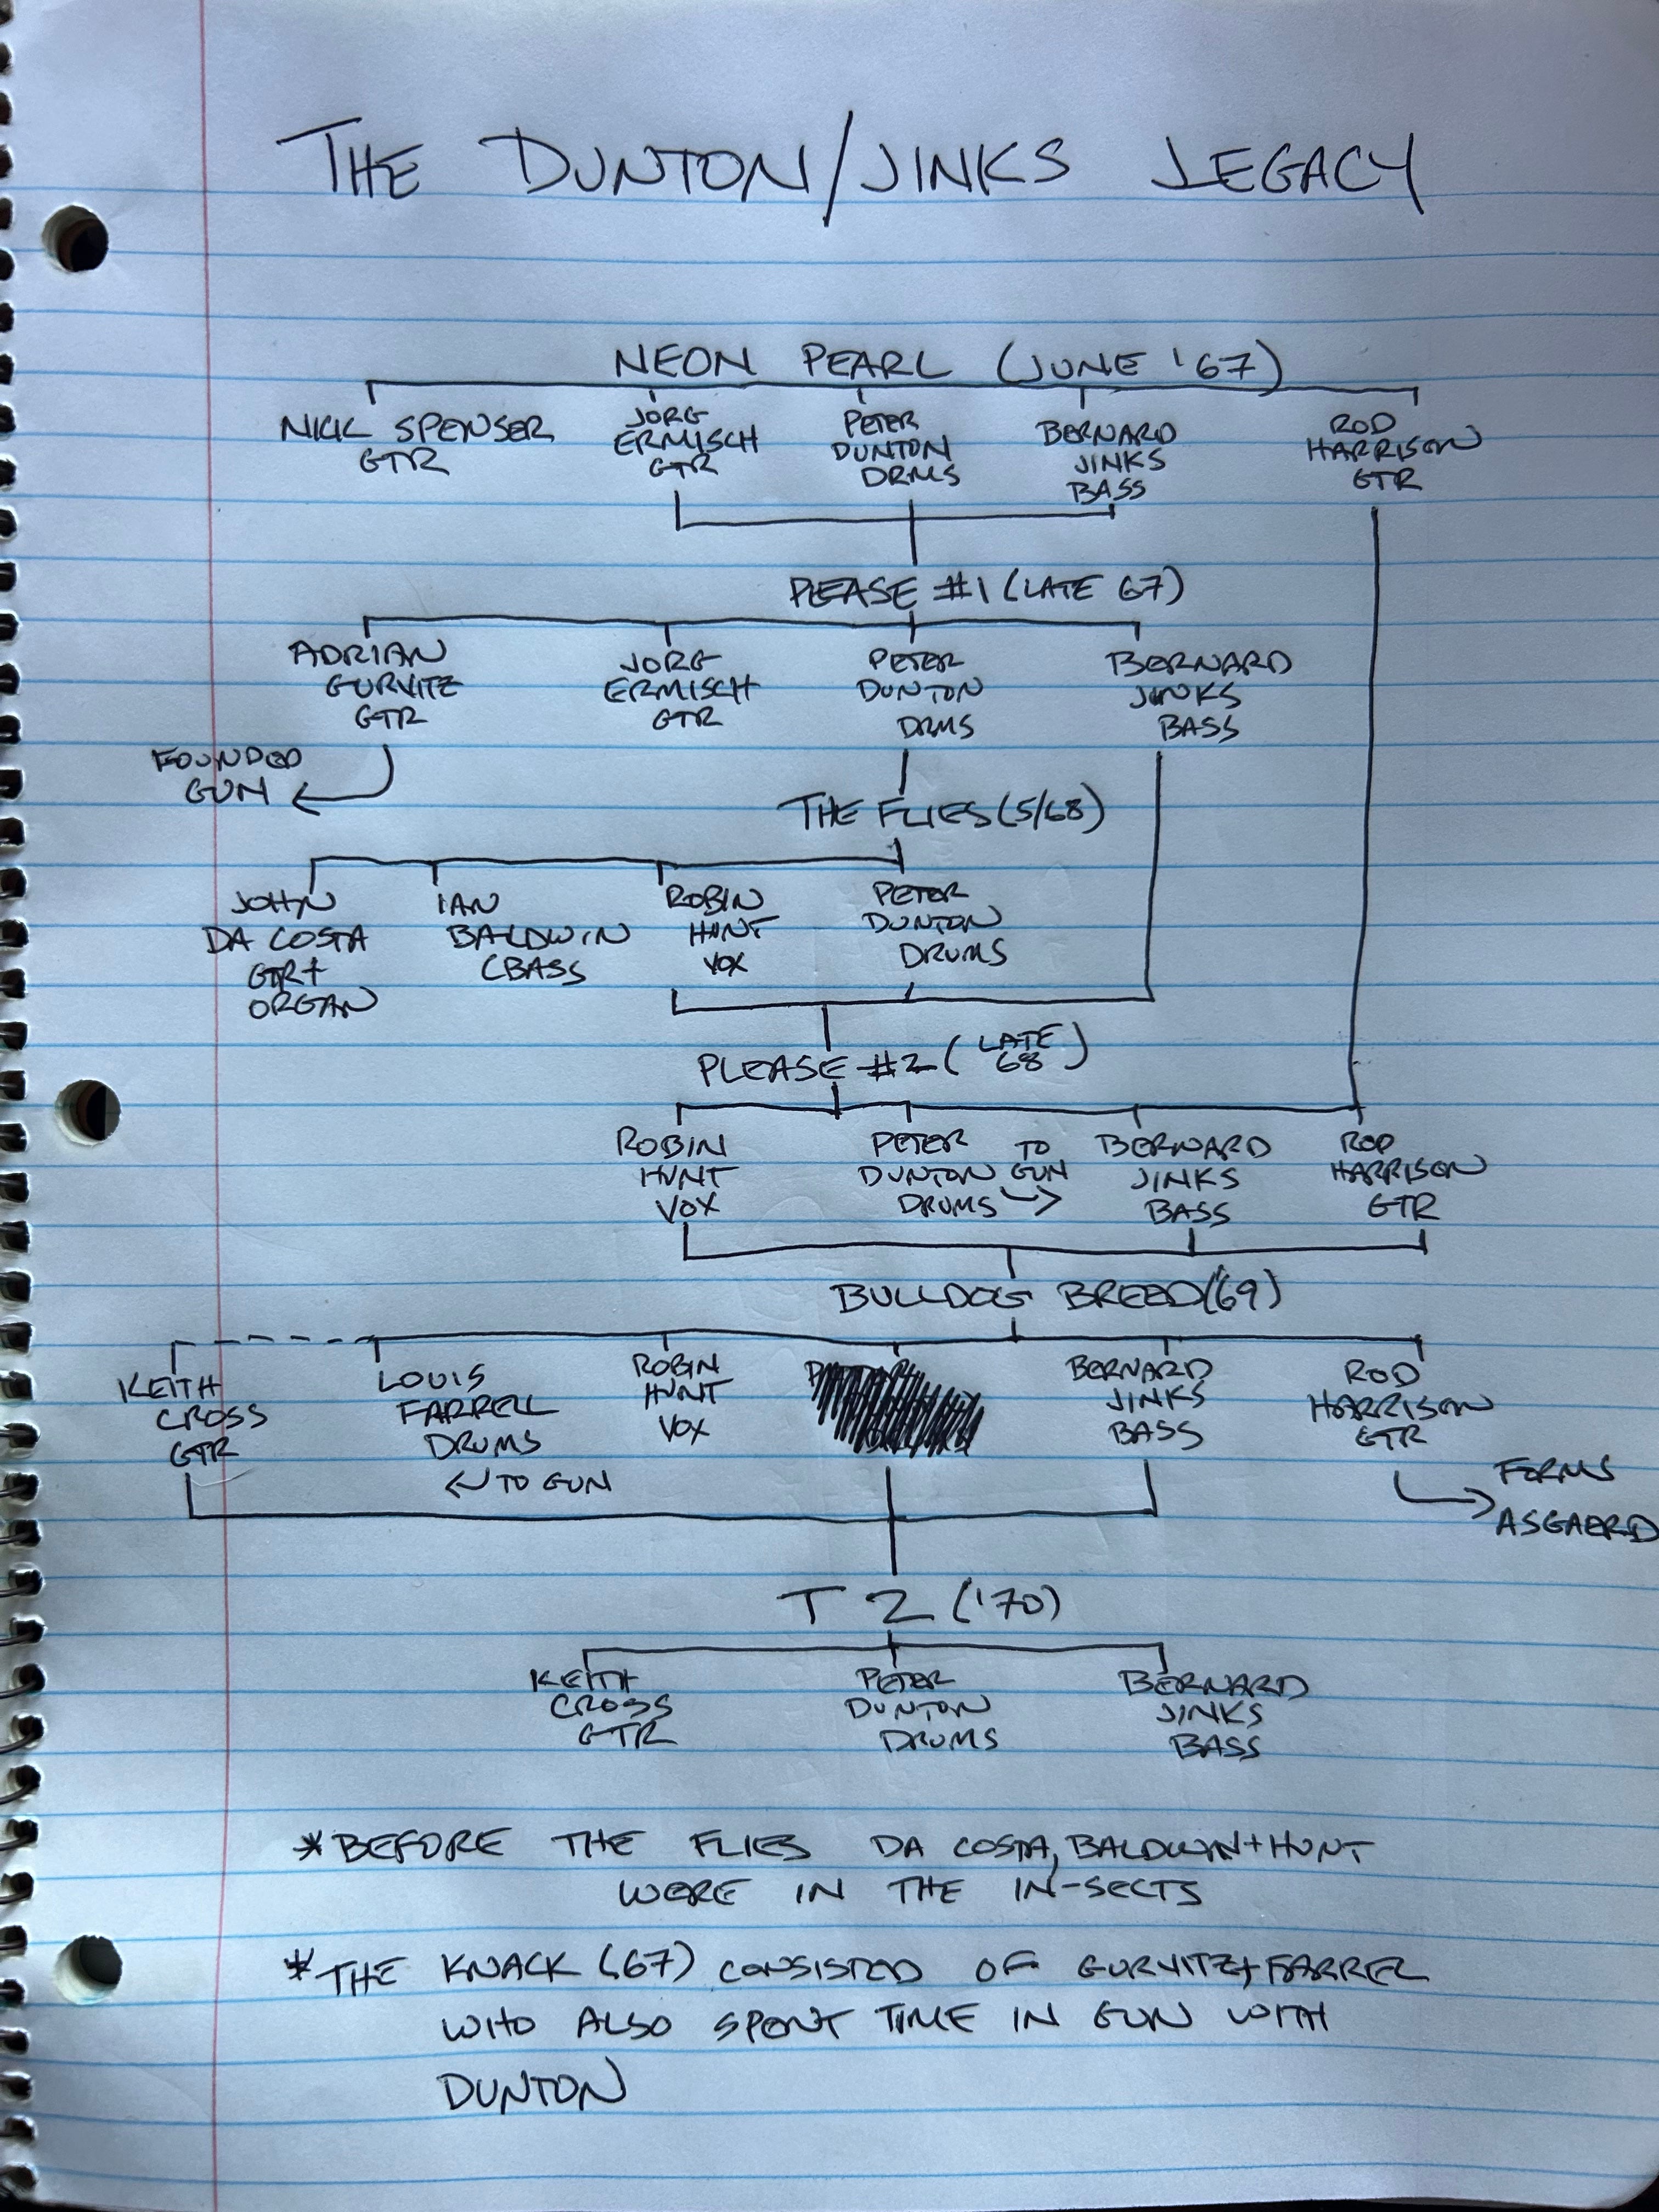 THE DUNTON/JINKS LEGACY
NEON PEARL (JUNE '67)
NICK SPENSER
GTR
JORG
ERMISCH
GTR
PETER
DUNTON
DRMS
BERNARD
JINKS
BASS
ROD
HARRISON
GTR
PLEASE #1 (LATE 67)
ADRIAN
GURVITZ
GTR
JORG
ERMISCH
GTR
PETER
DUNTON
DRMS
BERNARD
JINKS
BASS
FOUNDED
GUN
THE FLIES (5/68)
JOHN
DA COSTA
GTR+
ORGAN
IAN
BALDWIN
BASS
ROBIN
HUNT
VOX
PETER
DUNTON
DRUMS
PLEASE #2 (LATE
68)
ROBIN
HUNT
VOX
PETER
DUNTON
DRUMS
TO
GUN
BERNARD
JINKS
BASS
ROD
HARRISON
GTR
BULLDOG BREED ('69)
KEITH
CROSS
GTR
LOUIS
FARRELL
DRUMS
TO GUN
ROBIN
HUNT
VOX
BERNARD
JINKS
BASS
ROD
HARRISON
GTR
FORMS
ASGAERD
T2 ('70)
KEITH
CROSS
GTR
PETER
DUNTON
DRUMS
BERNARD
JINKS
BASS
*BEFORE THE FLIES DA COSTA, BALDWIN + HUNT
WERE IN THE IN-SECTS
*THE KNACK (67) CONSISTED OF GURVITZ + FARREL
WHO ALSO SPENT TIME IN GUN WITH
DUNTON